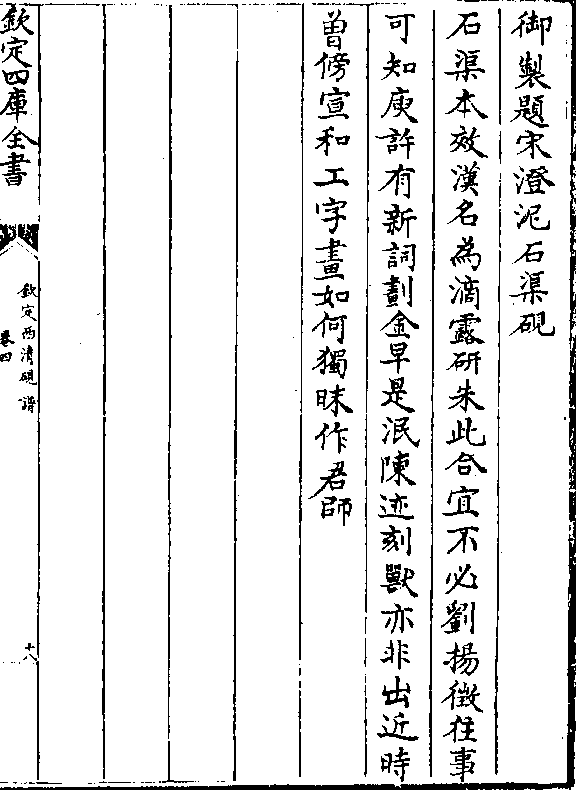 御製題宋澄泥石渠硯
石渠本效漢名為滴露研朱此合宜不必劉揚徴徃事
可知庾許有新詞劃金早是泯陳迹刻獸亦非出近時
曽傍宣和工字畫如何獨昧作君師
欽定四庫全書
欽定西清硯譜
卷四
十八